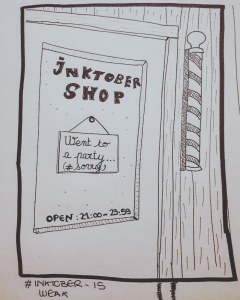 inktober
SHOP
Went to
a party...
(≠ sorry)
OPEN: 21:00 - 23:59
# INKTOBER - 15
WEAK